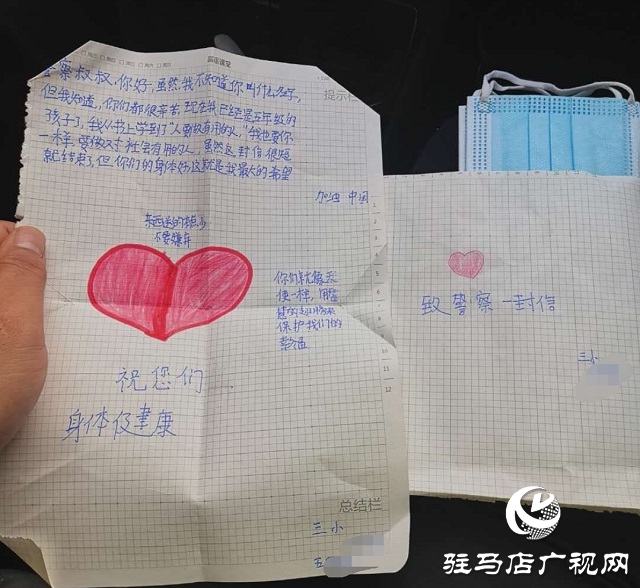 警察叔叔，你好，虽然我不知道你叫什么名字，
但我知道，你们都很辛苦，现在我已经是五年级的
孩子了，我从书上学到了"人要做有用的人，"我也要你
一样，要做对社会有用的人，虽然这封信很短
就结束了，但你们的身体好这就是我最大的希望
加油 中国
提示栏
东西送的有点少
不要嫌弃
你们就像天
使一样，用
保护我们的
幸福
祝您们
身体健康
总结栏
三小
五
致警察一封信
三小
驻马店广视网